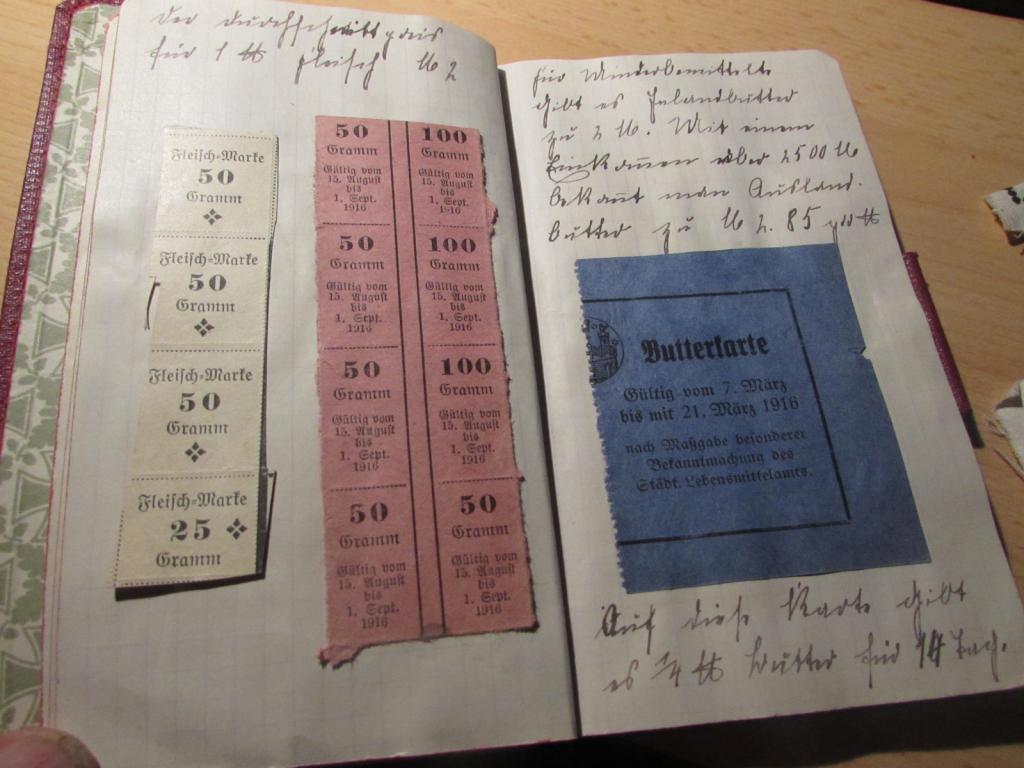 Der Durchschnittspreis
für 1 ℔ Fleisch ℳ 2
Fleisch=Marke
50
Gramm
Fleisch=Marke
50
Gramm
Fleisch=Marke
50
Gramm
Fleisch=Marke
25
Gramm
50
Gramm
Gültig vom
15. August
bis
1. Sept.
1916
50
Gramm
Gültig vom
15. August
bis
1. Sept.
1916
50
Gramm
Gültig vom
15. August
bis
1. Sept.
1916
50
Gramm
Gültig vom
15. August
bis
1. Sept.
1916
100
Gramm
Gültig vom
15. August
bis
1. Sept.
1916
100
Gramm
Gültig vom
15. August
bis
1. Sept.
1916
100
Gramm
Gültig vom
15. August
bis
1. Sept.
1916
50
Gramm
Gültig vom
15. August
bis
1. Sept.
1916
Für Minderbemittelte
gibt es Inlandbutter
zu 2 ℳ. Mit einem
Einkommen über 2500 ℳ
bekomt man Ausland.
butter zu ℳ 2.85 pro ℔
Butterkarte
Gültig vom 7. März
bis mit 21. März 1916
nach Maßgabe besonderer
Bekanntmachung des
Städt. Lebensmittelamts.
Auf diese Karte gibt
es 1/4 ℔ Butter für 14 Tag.